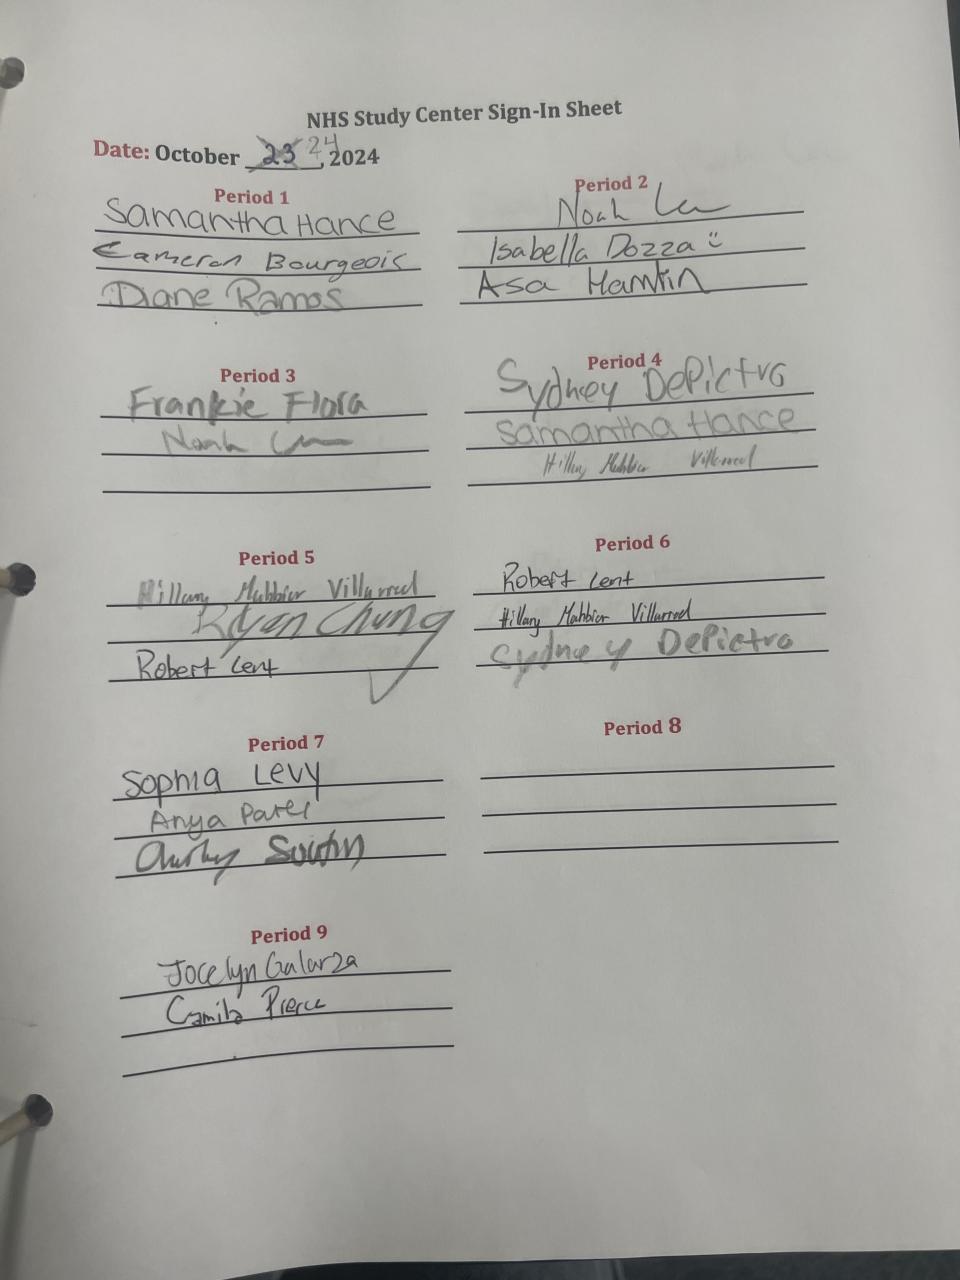 NHS Study Center Sign-In Sheet
Date: October 23 24, 2024
Period 1
Samantha Hance
Cameron Bourgeois
Diane Ramos
Period 2
Noah
Isabella Dozza
Asa Hamlin
Period 3
Frankie Flora
Noah
Period 4
Sydney DePietro
Samantha Hance
Hillary Villarreal
Period 5
Hillary Villarreal
Ryan Chung
Robert Lent
Period 6
Robert Lent
Hillary Villarreal
Sydney DePietro
Period 7
Sophia Levy
Anya Patel
Period 8
Period 9
Jocelyn Galarza
Camila Pierce